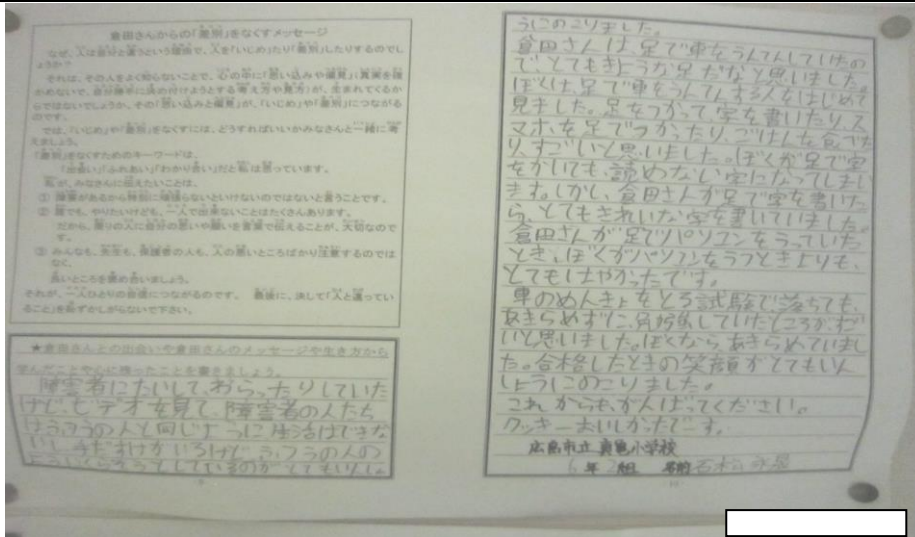 倉田さんからの「差別」をなくすメッセージ
なぜ、人は自分と違うという理由で、人を「いじめ」たり「差別」したりするのでし
ょうか？
それは、その人をよく知らないことで、心の中に「思い込みや偏見」(真実を確
かめないで、自分勝手に決め付けようとする考え方や見方)が、生まれてくるか
らではないでしょうか。その「思い込みと偏見」が、「いじめ」や「差別」につながる
のです。
では、「いじめ」や「差別」をなくすには、どうすればいいかみなさんと一緒に考
えましょう。
「差別」をなくすためのキーワードは、
「出会い」「ふれあい」「わかり合い」だと私は思っています。
私が、みなさんに伝えたいことは、
① 障害があるから特別に頑張らないといけないのではないと言うことです。
② 誰でも、やりたいけども、一人で出来ないことはたくさんあります。
だから、周りの人に自分の思いや願いを言葉で伝えることが、大切なので
す。
③ みんなも、先生も、保護者の人も、人の悪いところばかり注意するのでは
なく、
良いところを褒め合いましょう。
それが、一人ひとりの自信につながるのです。 最後に、決して「人と違ってい
ること」を恥ずかしがらないで下さい。
★倉田さんとの出会いや倉田さんのメッセージや生き方から
学んだことや心に残ったことを書きましょう。
障害者にたいして、わらったりしていた
けど、ビデオを見て、障害者の人たち
はふつうの人と同じように生活はできな
いし、手だすけがいるけど、ふつうの人の
ようにくらそうとしているのがとてもいんしょ
うにのこりました。
倉田さんは、足で車をうんてんしていたの
で、とてもきような足だなと思いました。
ぼくは、足で車をうんてんする人をはじめて
見ました。足をつかって、字を書いたり、ス
マホを足でつかったり、ごはんを食べた
り、すごいと思いました。ぼくが足で字
をかいても、読めない字になってしまい
ます。しかし、倉田さんが足で字を書いた
ら、とてもきれいな字を書いていました。
倉田さんが足でパソコンをうっていた
とき、ぼくがパソコンをうつときよりも、
とてもはやかったです。
車のめんきょをとる試験で落ちても、
あきらめずに、勉強していたところがすご
いと思いました。ぼくなら、あきらめていまし
た。合格したときの笑顔がとてもいん
しょうにのこりました。
これからも、がんばってください。
クッキーおいしかったです。
広島市立 真亀小学校
6年2組 名前